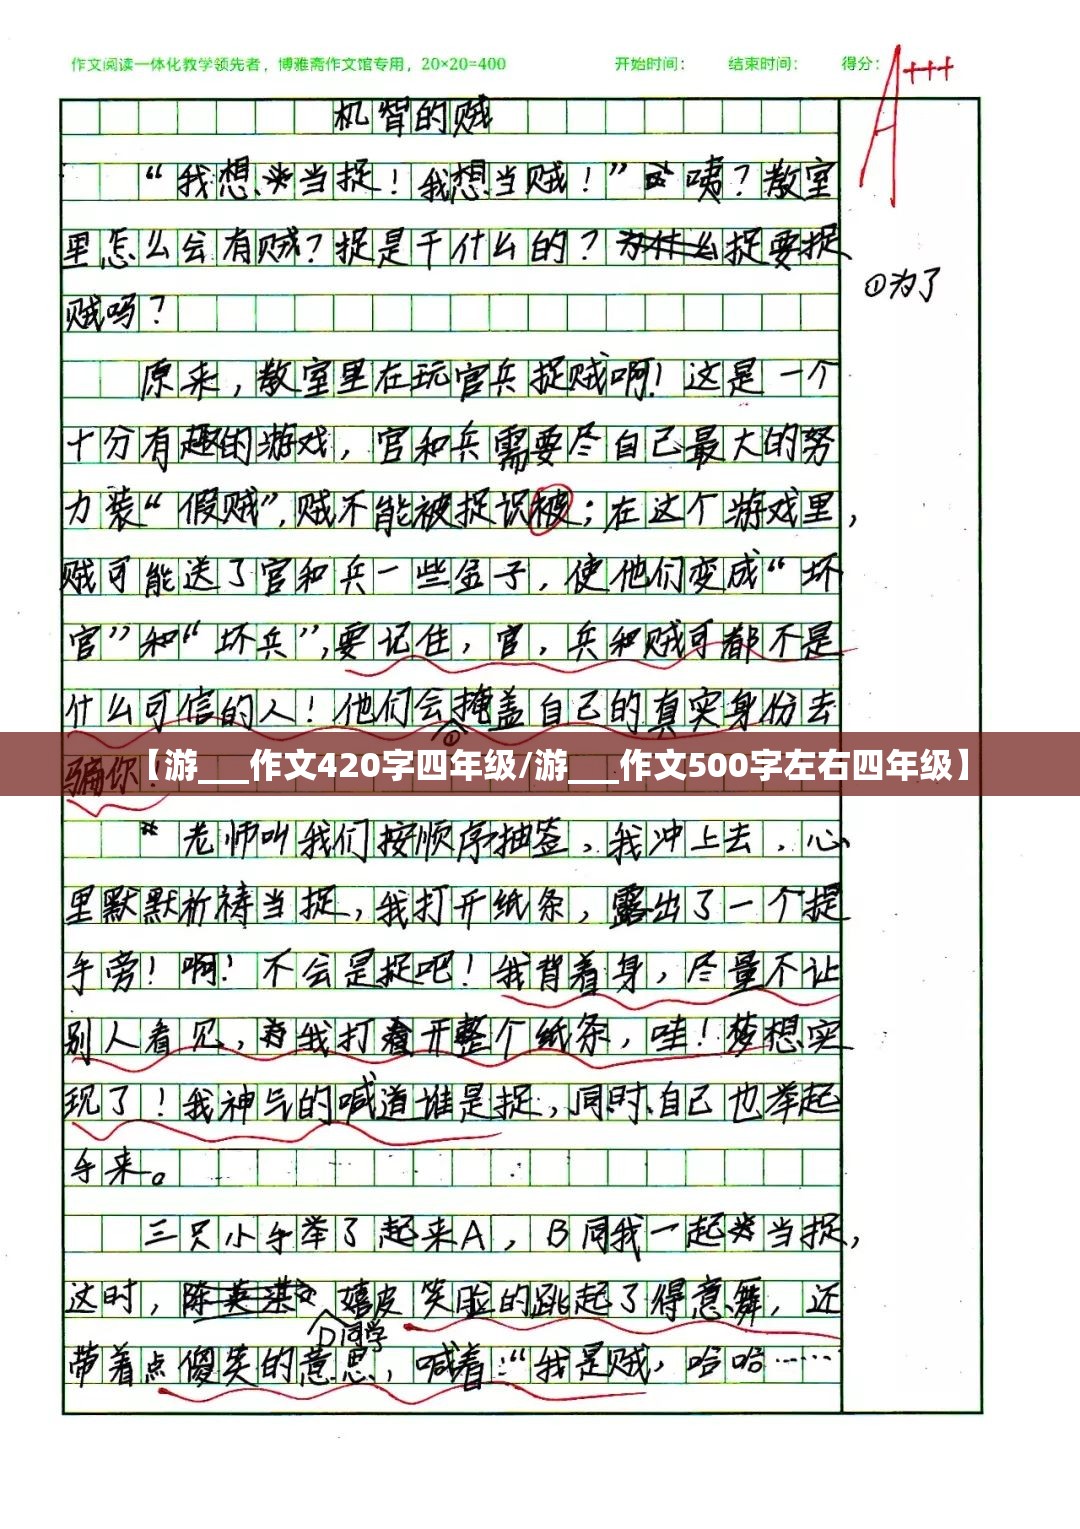 作文阅读一体化教学领先者，博雅斋作文馆专用，20×20=400 开始时间： 结束时间： 得分：A+++
机智的贼
“我想当捉！我想当贼！”咦？教室
里怎么会有贼？捉是干什么的？捉要捉
①为了
贼吗？
原来，教室里在玩官兵捉贼啊！这是一个
十分有趣的游戏，官和兵需要尽自己最大的努
力装“假贼”，贼不能被捉识被；在这个游戏里，
贼可能送了官和兵一些金子，使他们变成“坏
官”和“坏兵”，要记住，官，兵和贼可都不是
什么可信的人！他们会掩盖自己的真实身份去
②
骗你！
【游___作文420字四年级/游___作文500字左右四年级】
老师叫我们按顺序抽签，我冲上去，心
里默默祈祷当捉，我打开纸条，露出了一个提
手旁！啊！不会是捉吧！我背着身，尽量不让
别人看见，我打开整个纸条，哇！梦想实
现了！我神气的喊道谁是捉，同时自己也举起
手来。
三只小手举了起来A，B同我一起当捉，
这时，嬉皮笑脸的跳起了得意舞，还
D同学
带着点傻笑的意思，喊着：“我是贼，哈哈……